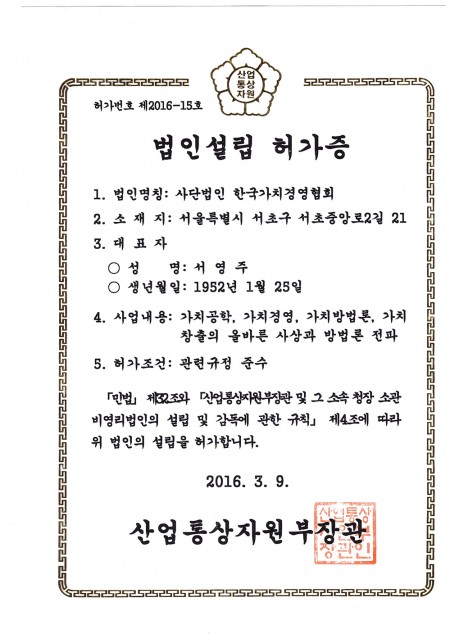 산업
통상
자원
허가번호 제2016-15호
법인설립 허가증
1. 법인명칭: 사단법인 한국가치경영협회
2. 소 재 지: 서울특별시 서초구 서초중앙로2길 21
3. 대 표 자
○ 성 명: 서 영 주
○ 생년월일: 1952년 1월 25일
4. 사업내용: 가치공학, 가치경영, 가치방법론, 가치
창출의 올바른 사상과 방법론 전파
5. 허가조건: 관련규정 준수
「민법」 제32조와 「산업통상자원부장관 및 그 소속 청장 소관
비영리법인의 설립 및 감독에 관한 규칙」 제4조에 따라
위 법인의 설립을 허가합니다.
2016. 3. 9.
산업통상자원부장관
산업통상
자원부
장관인